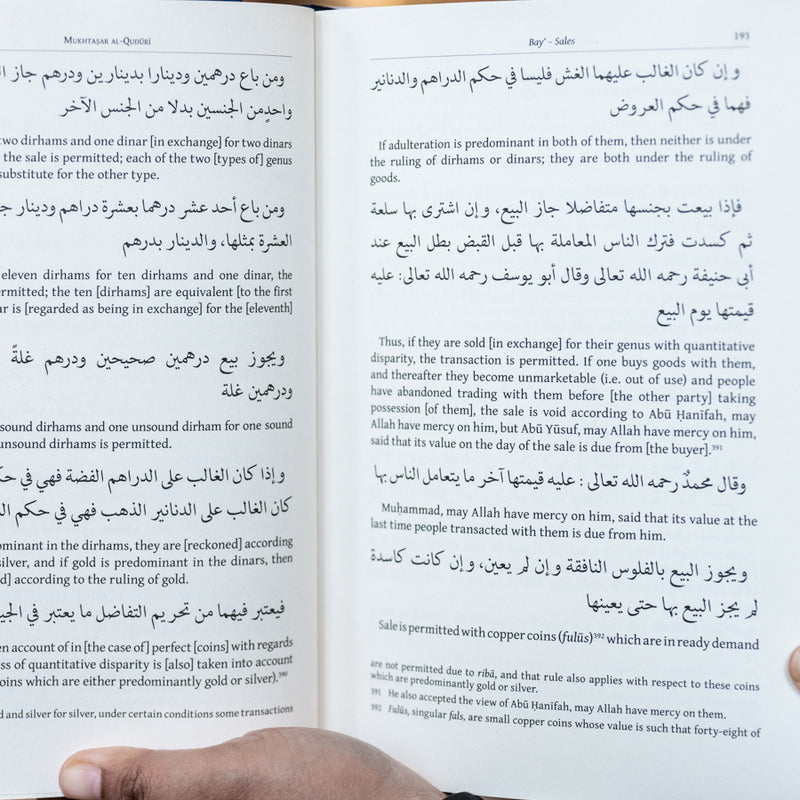 Mukhtaṣar al-Qudūrī
ومن باع درهمين ودينارا بدينارين ودرهم جاز
واحدٍمن الجنسين بدلا من الجنس الآخر
two dirhams and one dinar [in exchange] for two dinars
the sale is permitted; each of the two [types of] genus
substitute for the other type.
ومن باع أحد عشر درهما بعشرة دراهم ودينار
العشرة بمثلها، والدينار بدرهم
eleven dirhams for ten dirhams and one dinar, the
ermitted; the ten [dirhams] are equivalent [to the first
ar is [regarded as being in exchange] for the [eleventh]
ويجوز بيع درهمين صحيحين ودرهم غلةً
ودرهمين غلة
sound dirhams and one unsound dirham for one sound
unsound dirhams is permitted.
وإذا كان الغالب على الدراهم الفضة فهي في
كان الغالب على الدنانير الذهب فهي في حكم
ominant in the dirhams, they are [reckoned] according
silver, and if gold is predominant in the dinars, then
d] according to the ruling of gold.
فيعتبر فيهما من تحريم التفاضل ما يعتبر في
en account of in [the case of] perfect [coins] with regards
ss of quantitative disparity is [also] taken into account
oins which are either predominantly gold or silver).³⁹⁰
d and silver for silver, under certain conditions some transactions
Bay' – Sales 193
وإن كان الغالب عليهما الغش فليسا في حكم الدراهم والدنانير
فهما في حكم العروض
If adulteration is predominant in both of them, then neither is under
the ruling of dirhams or dinars; they are both under the ruling of
goods.
فإذا بيعت بجنسها متفاضلا جاز البيع، وإن اشترى بها سلعة
ثم كسدت فترك الناس المعاملة بها قبل القبض بطل البيع عند
أبي حنيفة رحمه الله تعالى وقال أبو يوسف رحمه الله تعالى: عليه
قيمتها يوم البيع
Thus, if they are sold [in exchange] for their genus with quantitative
disparity, the transaction is permitted. If one buys goods with them,
and thereafter they become unmarketable (i.e. out of use) and people
have abandoned trading with them before [the other party] taking
possession [of them], the sale is void according to Abū Ḥanīfah, may
Allah have mercy on him, but Abū Yūsuf, may Allah have mercy on him,
said that its value on the day of the sale is due from [the buyer].³⁹¹
وقال محمدٌ رحمه الله تعالى : عليه قيمتها آخر ما يتعامل الناس بها
Muḥammad, may Allah have mercy on him, said that its value at the
last time people transacted with them is due from him.
ويجوز البيع بالفلوس النافقة وإن لم يعين، وإن كانت كاسدة
لم يجز البيع بها حتى يعينها
Sale is permitted with copper coins (fulūs)³⁹² which are in ready demand
are not permitted due to ribā, and that rule also applies with respect to these coins
which are predominantly gold or silver.
391 He also accepted the view of Abū Ḥanīfah, may Allah have mercy on them.
392 Fulūs, singular fals, are small copper coins whose value is such that forty-eight of